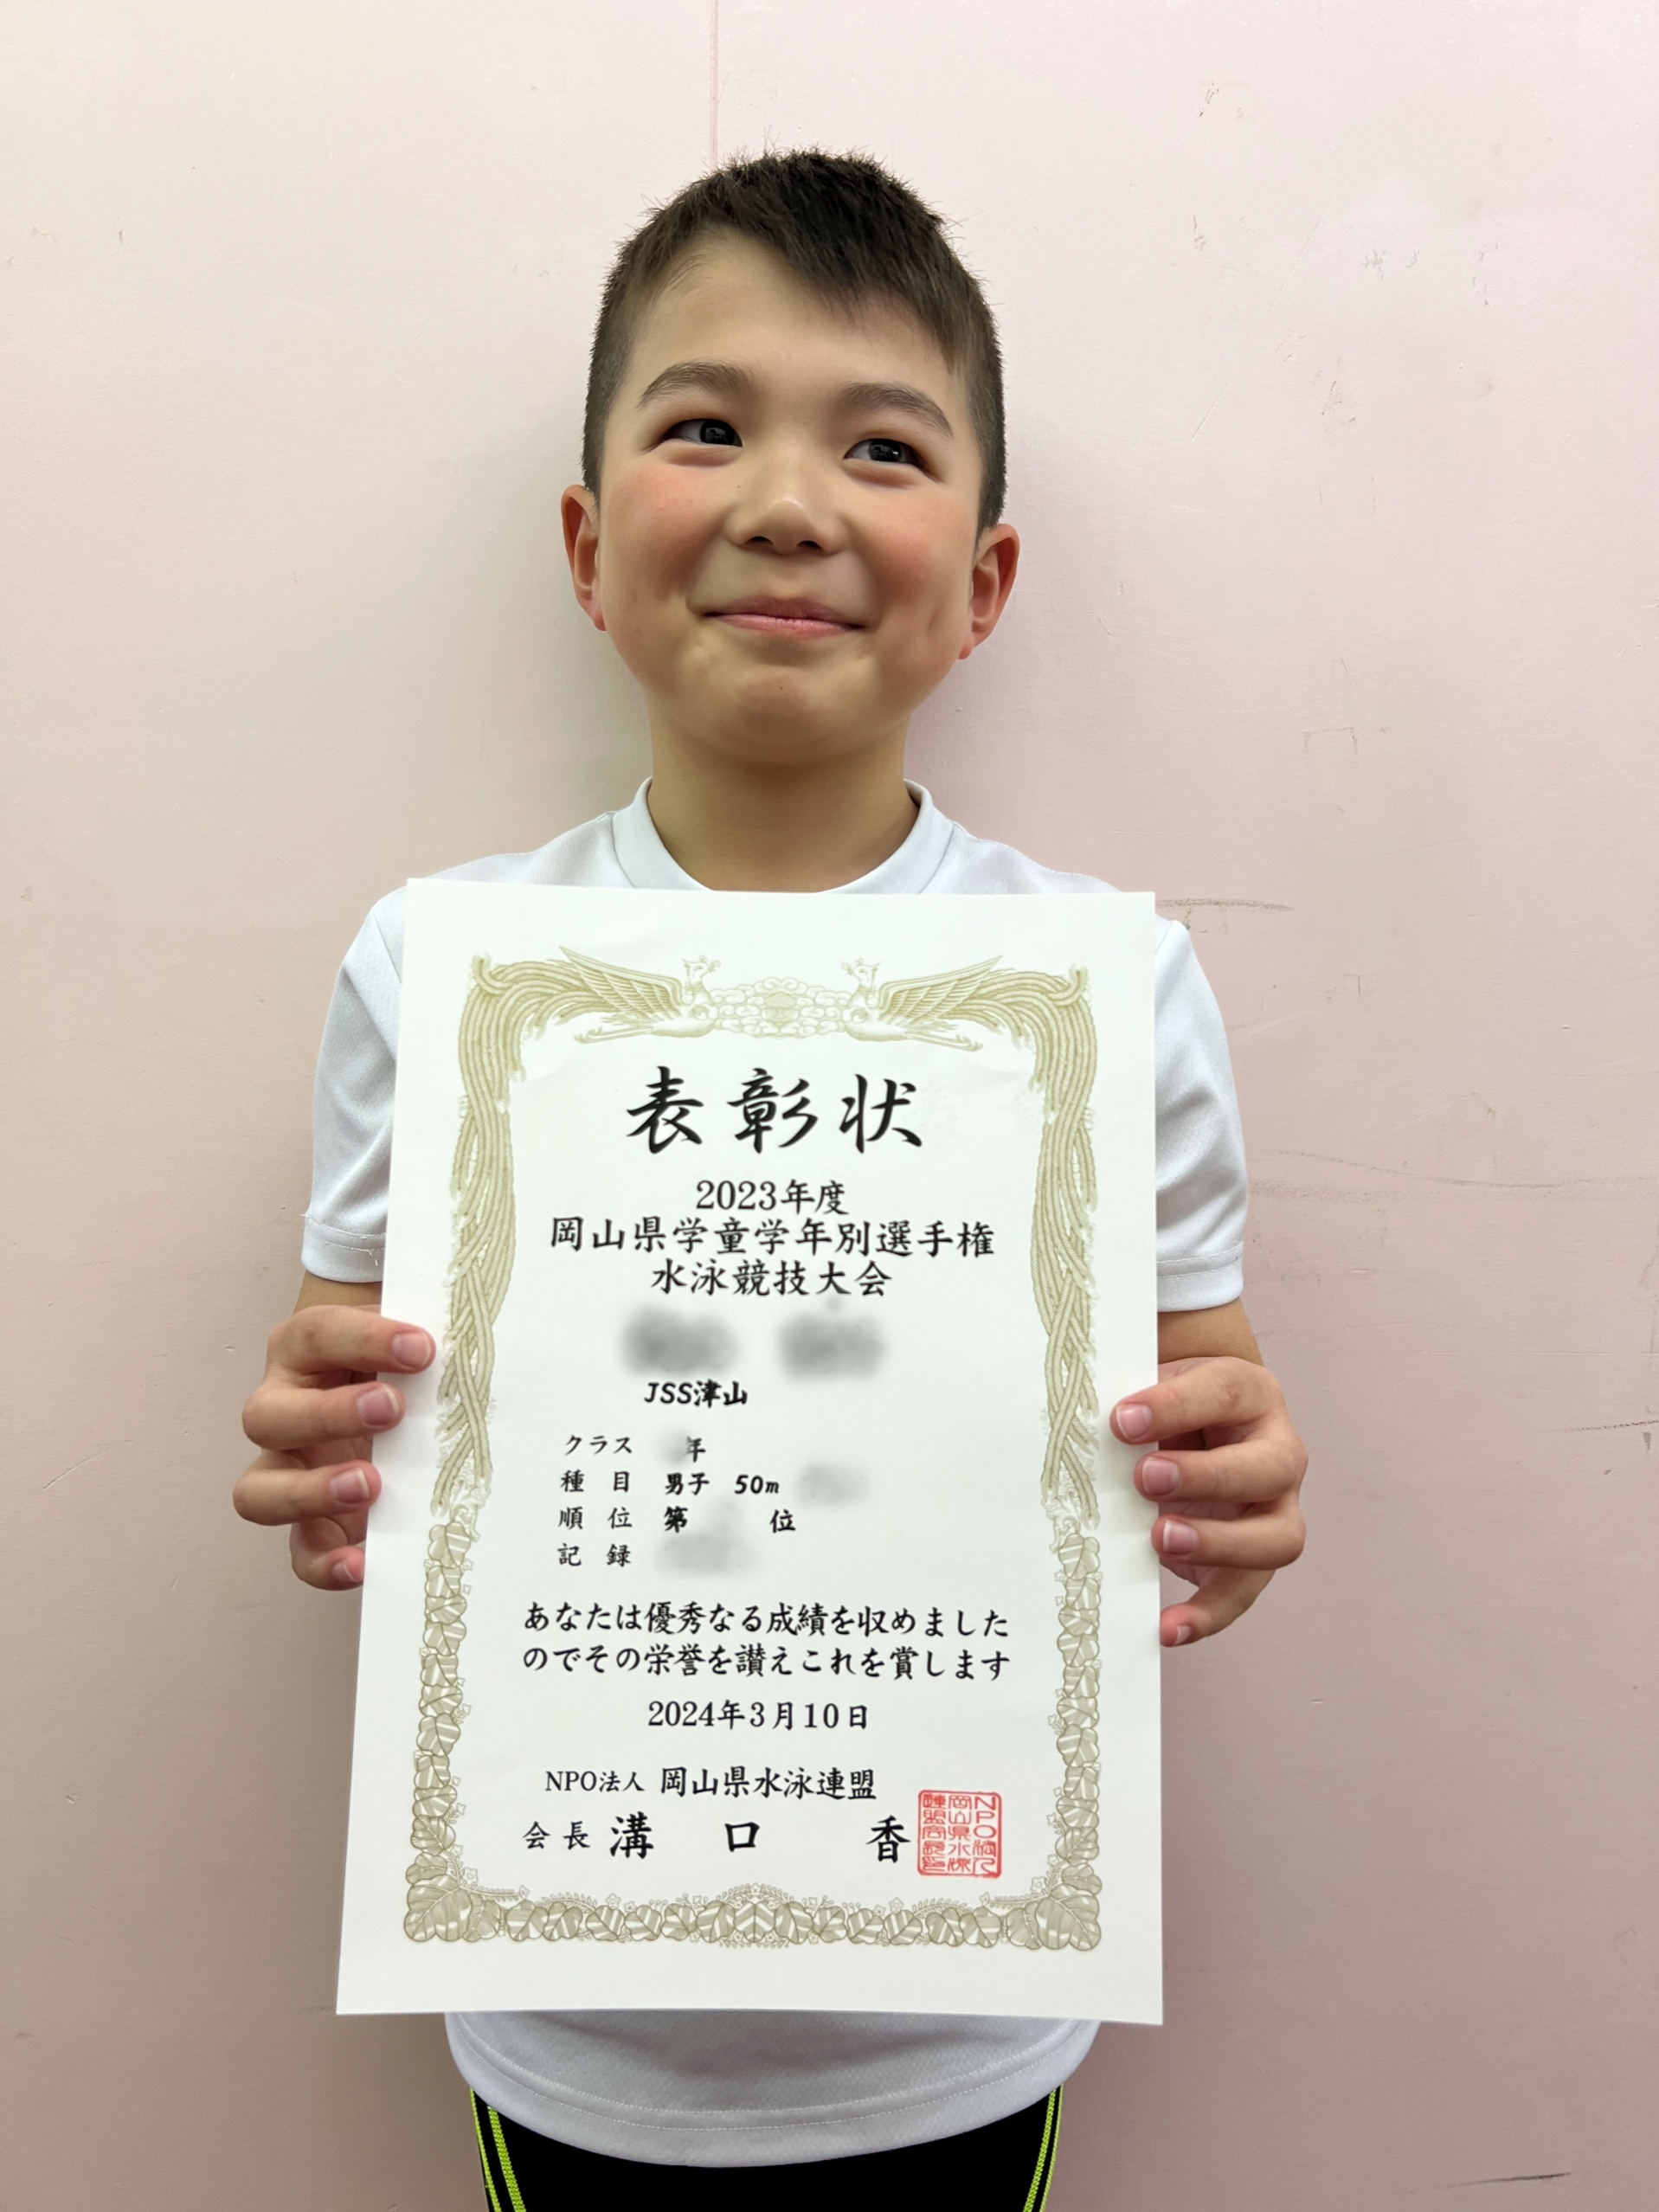 表彰状
2023年度
岡山県学童学年別選手権
水泳競技大会
JSS津山
クラス 年
種目 男子 50m
順位 第 位
記録
あなたは優秀なる成績を収めました
のでその栄誉を讃えこれを賞します
2024年3月10日
NPO法人 岡山県水泳連盟
会長 溝口 香